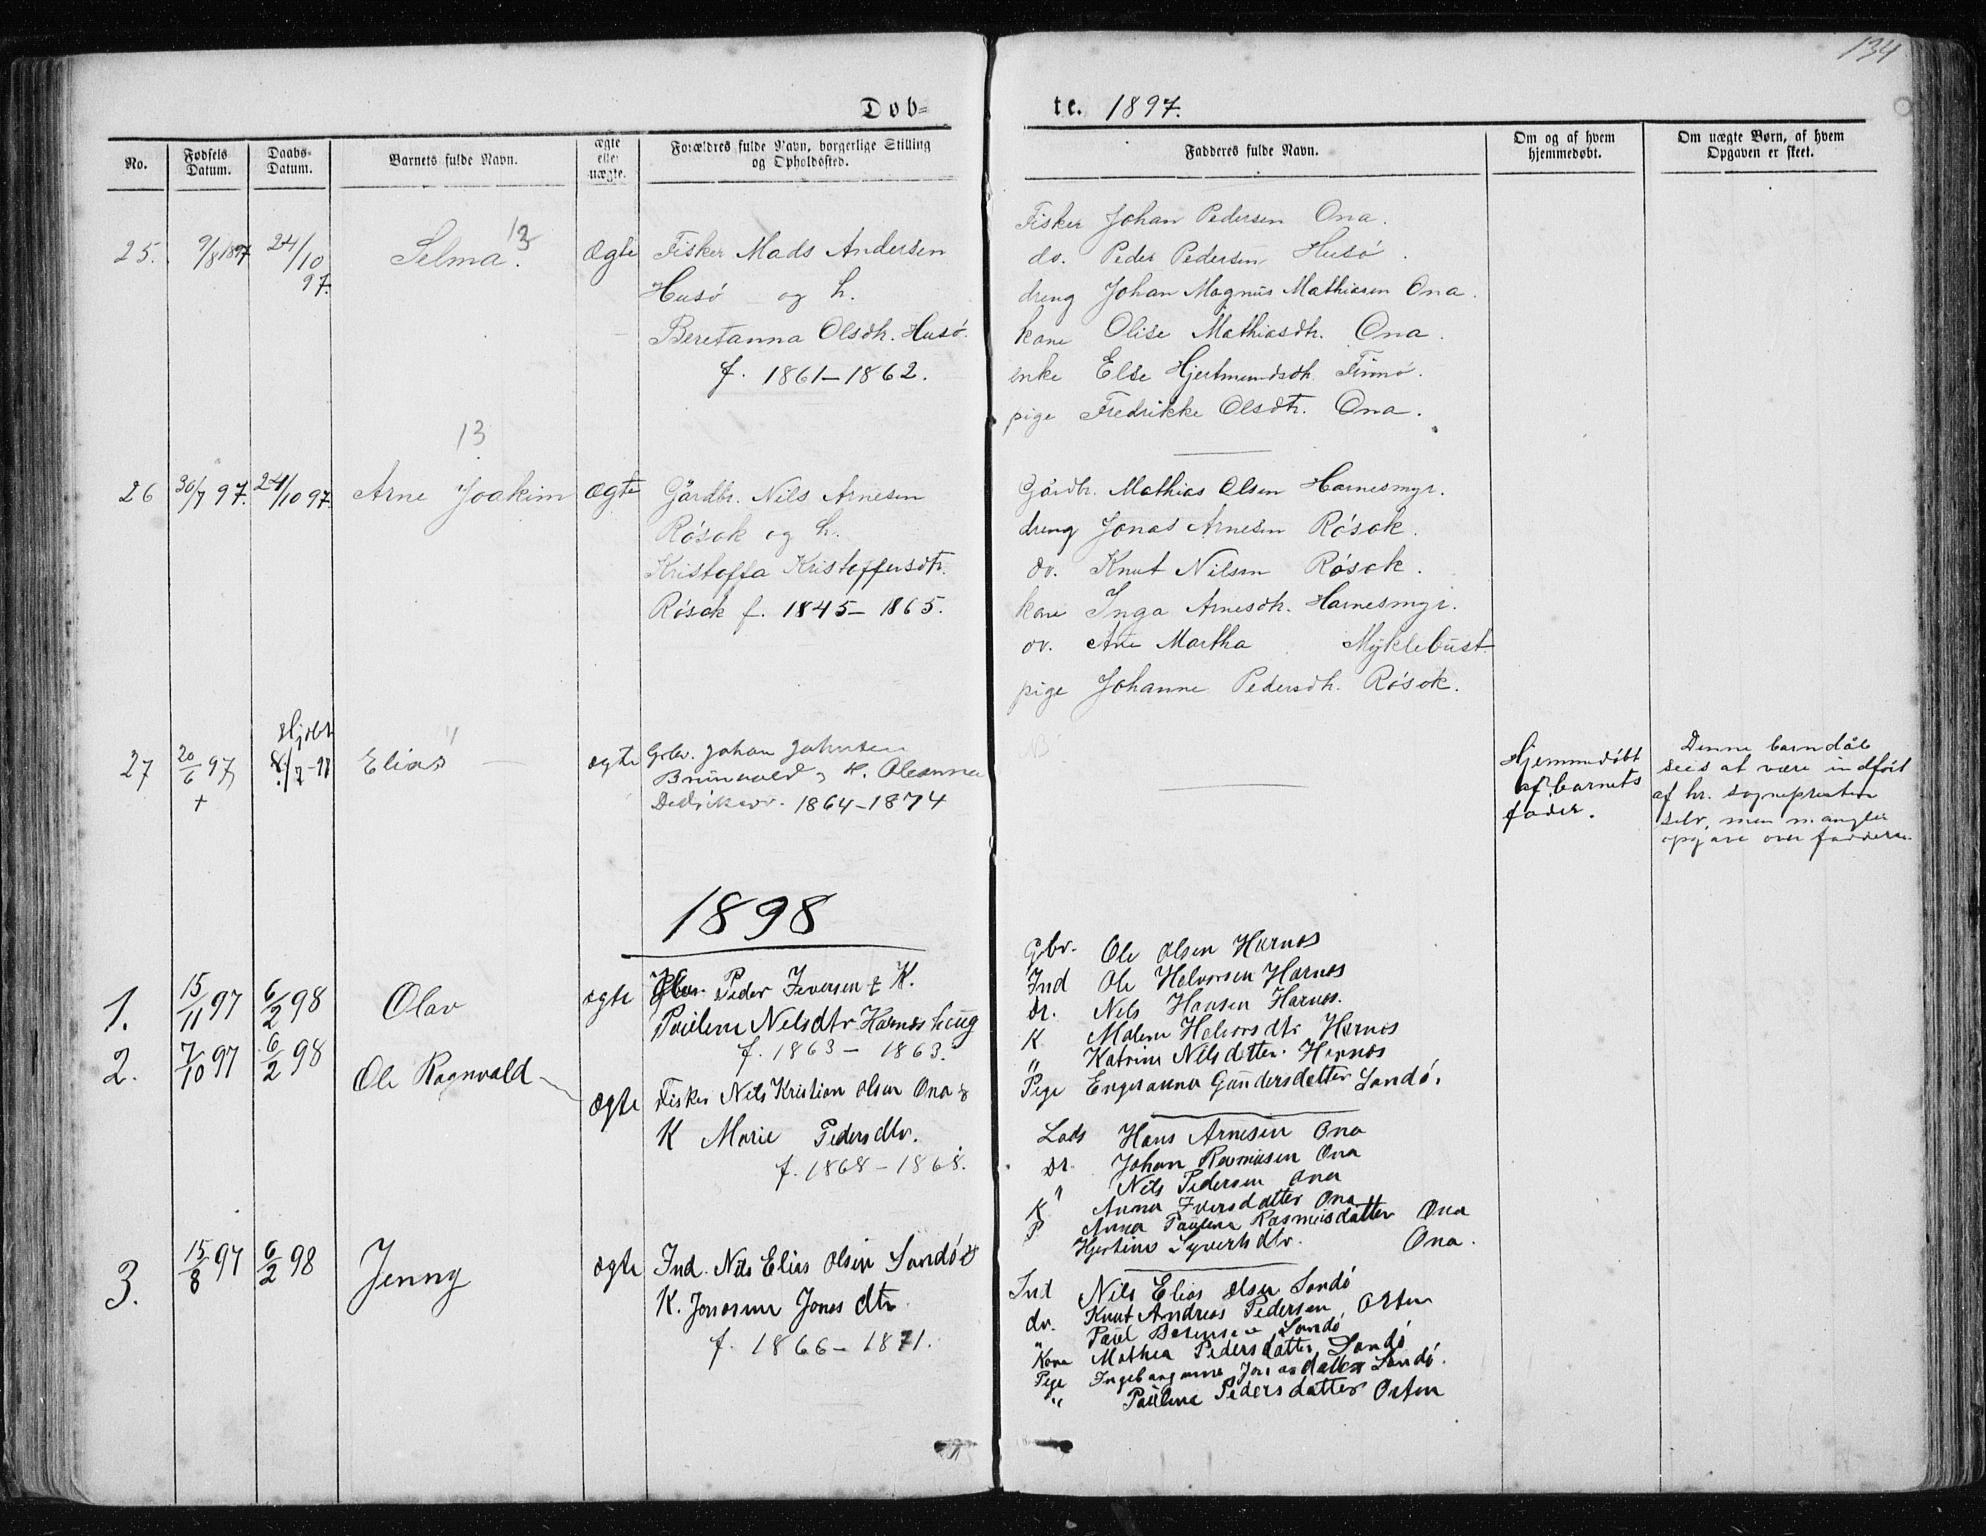 134
Døb=
te. 1897.
No.
Fødsels Datum.
Daabs- Datum.
Barnets fulde Navn.
ægte eller uægte.
Forældres fulde Navn, borgerlige Stilling og Opholdssted.
Fadderes fulde Navn.
Om og af hvem hjemmedøbt.
Om uægte Børn, af hvem Opgaven er skeet.
25. 9/8 1897 24/10 97. Selma. 13 Ægte
Fisker Mads Andersen
Husø og h.
Beretanna Olsdtr. Husø.
f. 1861–1862.
Fisker Johan Pedersen Ona.
do. Peder Pedersen Husø.
dreng Johan Magnus Mathiasen Ona.
kone Olise Mathiasdtr. Ona.
enke Else Hjertmundsdtr. Finnø.
pige Fredrikke Olsdtr. Ona.
13
26 30/7 97. 24/10 97. Arne Joakim Ægte
Gårdbr. Nils Arnesen
Røsok og h.
Kristoffa Kristoffersdtr.
Røsok f. 1845–1865.
Gårdbr. Mathias Olsen Harnesmyr.
dreng Jonas Arnesen Røsok.
do. Knut Nilsen Røsok.
kone Inga Arnesdtr. Harnesmyr.
do. Ane Martha Myklebust
pige Johanne Pedersdtr. Røsok.
27 20/6 97 + Hjdbt 8/7-97 Elias ægte
Gbr. Johan Johnsen
K. Oleanna
1864–1874
Hjemmedøbt
af barnets
fader.
Denne barndåb
sees at være indført
af hr. sognepresten
selv, men mangler
opgave over faddere.
1898
1. 15/11 97 6/2 98 Olav ægte
Gbr. Peder Iversen & K.
Pauline Nelsdtr Harnes haug
f. 1863 – 1863.
Gbr. Ole Olsen Harnes
Ind Ole Halvorsen Harnes
Dr. Nels Hansen Harnes.
K. Malene Halvorsdtr Harnes
" Katrine Nilsdatter Harnes
Pige Engeranna Gundersdatter Sandø.
2. 7/10 97 6/2 98 Ole Ragnvald Ægte
Fisker Nils Kristian Olsen Ona &
K Marie Pedersdtr.
f. 1868 – 1868.
Lods Hans Arnesen Ona
Dr. Johan Rasmusen Ona
" Nils Pedersen Ona
K Anna Iversdatter Ona
P Anna Pauline Rasmusdatter Ona
Hjertine Syvertsdtr. Ona.
3. 15/8 97 6/2 98 Jenny ægte
Ind. Nils Elias Olsen Sandø &
K. Jonasine Jonasdtr.
f. 1866 – 1871.
Ind Nils Elias Olsen Sandø
do. Knut Andreas Pedersen Orten
" Paul Berensen Sandø
Kone Mathea Pedersdatter Sandø
Pige Ingeborganne Jonasdatter Sandø.
" Pauline Pedersdatter Orten